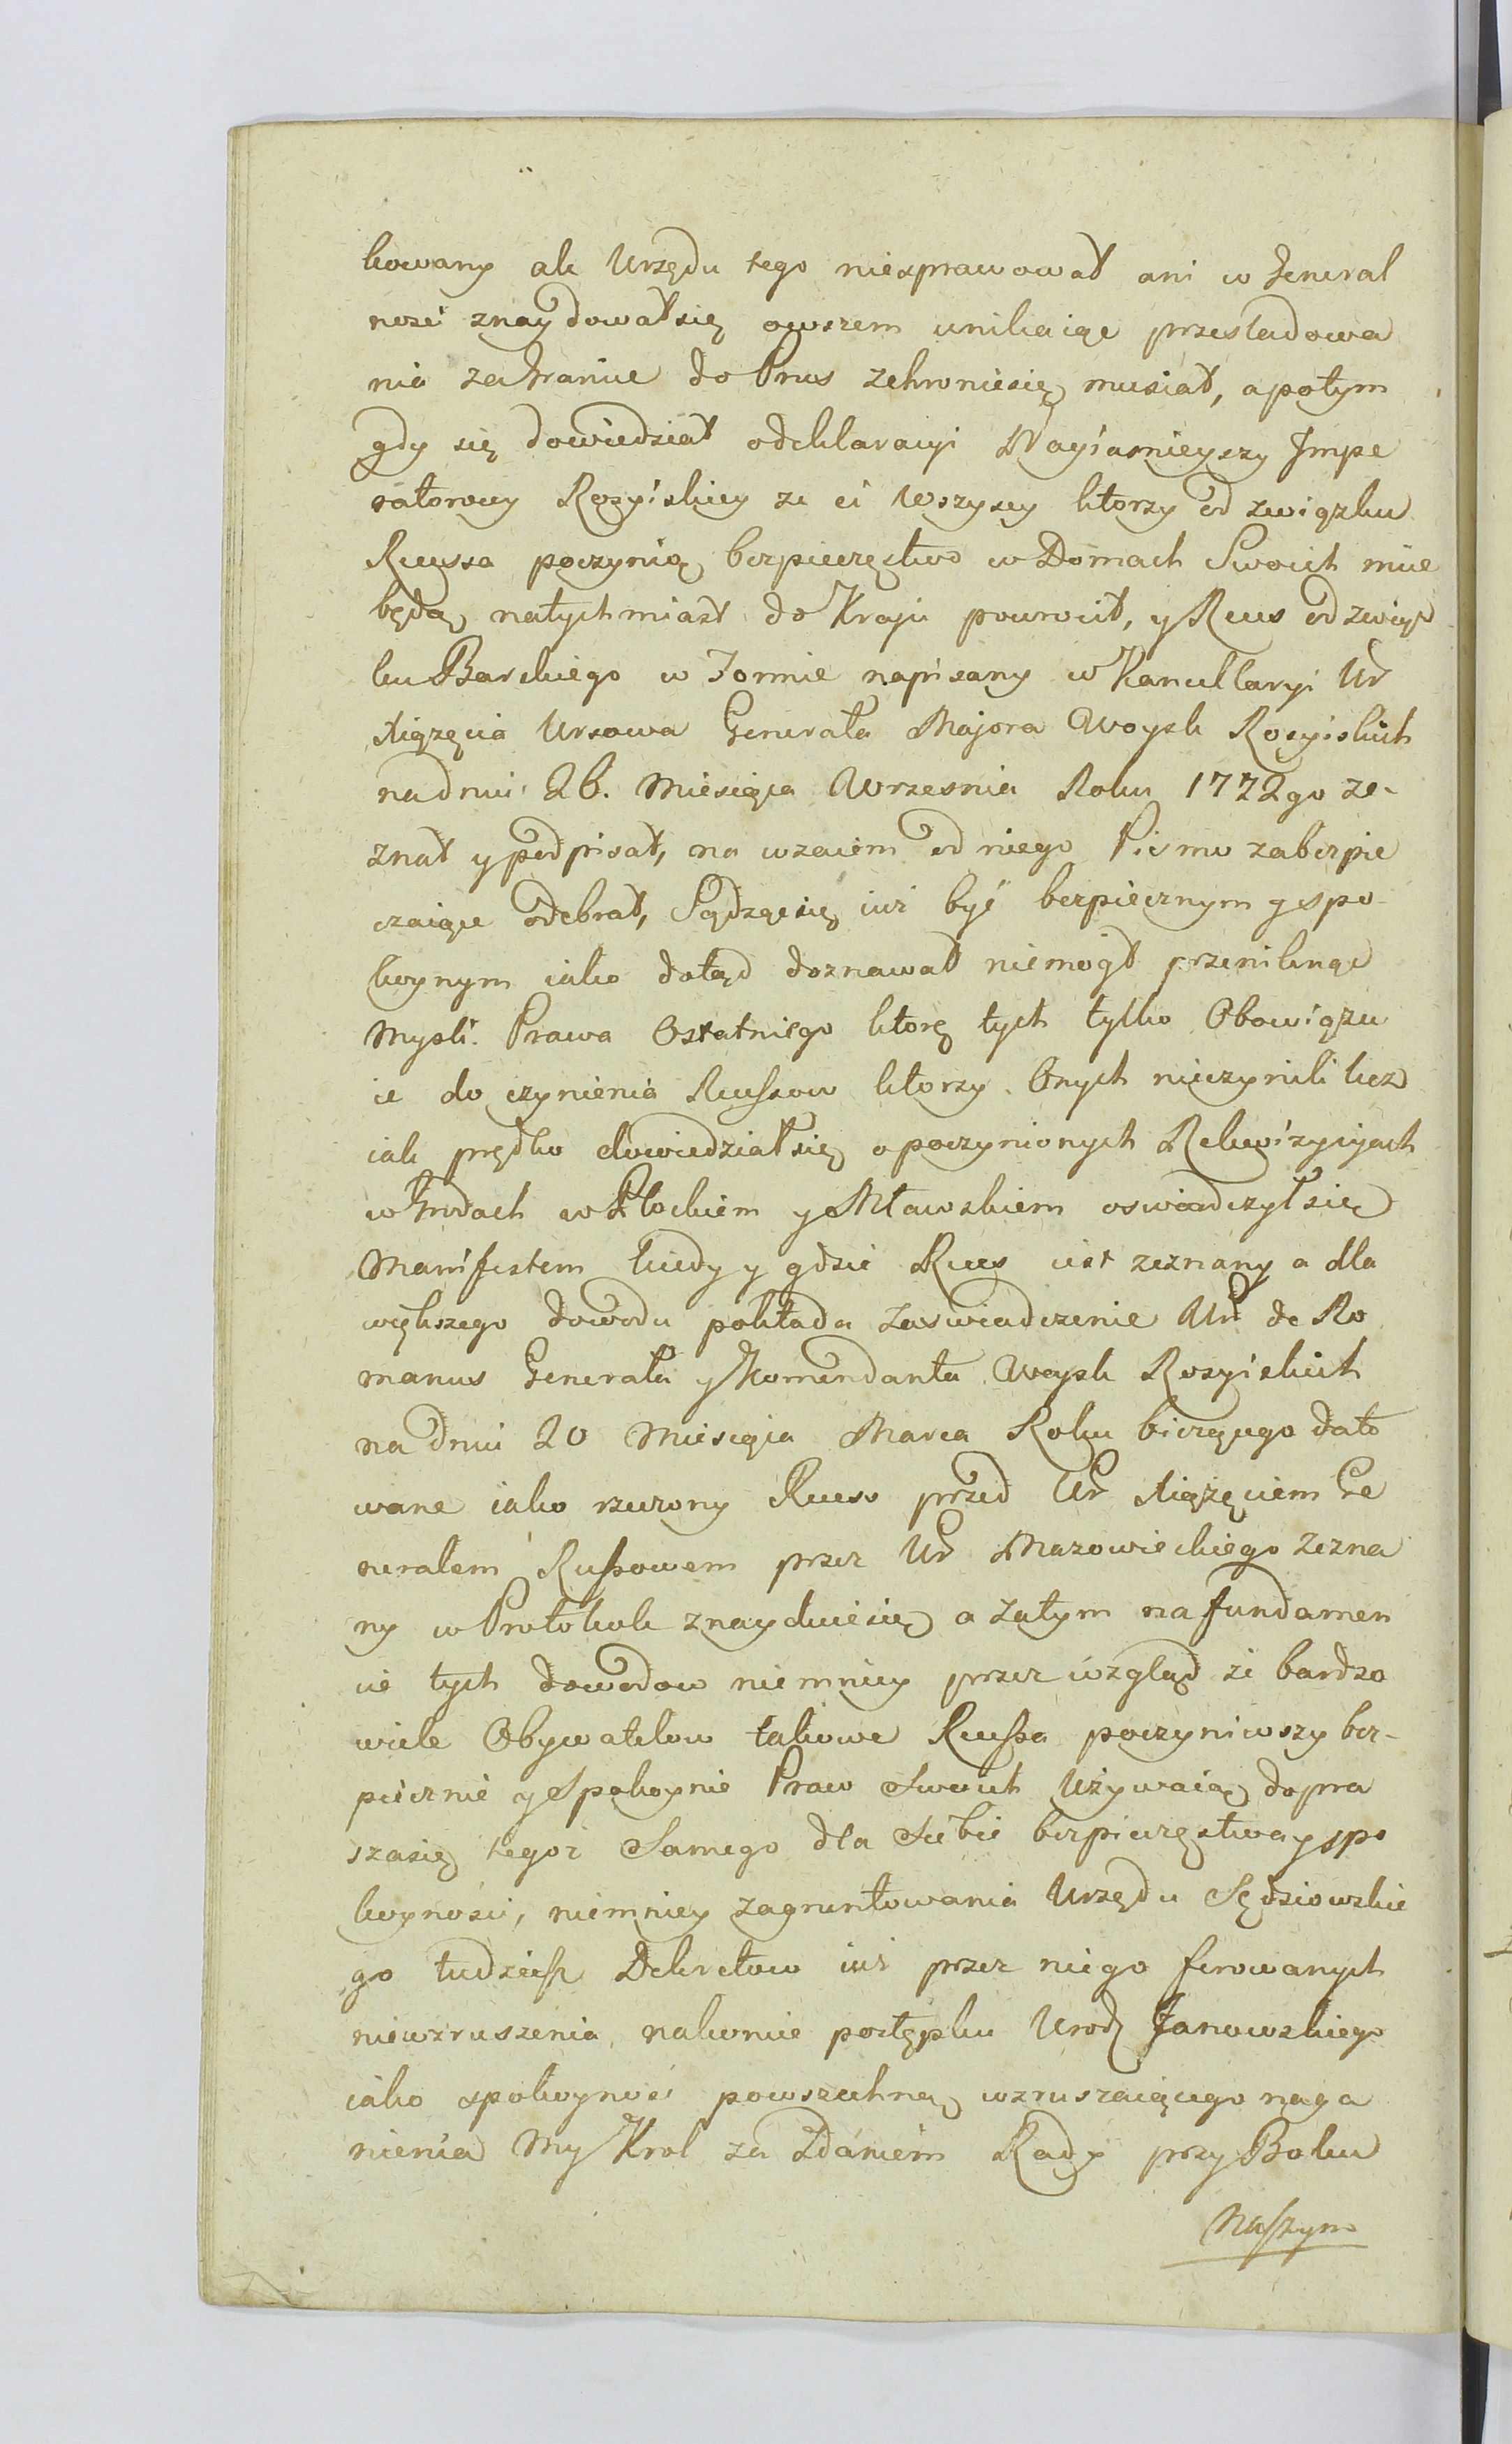 kowany ale Urzędu tego niesprawował ani w General
ności znaydował się owszem unikaiąc przesladowa
nia za Granice do Prus zchronić się musiał, a potym
gdy się dowiedział o deklaracyi Nayiasnieyszy Impe
ratorowy Rosyiskiey że ci Wszyscy ktorzy od związku
Recessa poczynią bespieczęstwo w Domach Swoich mieć
będą, natychmiast do Kraju powrocił, y Reces od związ
ku Barskiego w Formie napisany w Kancellaryi Ur
Xiążęcia Ursowa Generała Majora Woysk Rosyiskich
na dniu 26. Miesiąca Wrzesnia Roku 1772go ze-
znał y podpisał, na wzaiem od niego Pismo zabespie
czaiące odebrał, Sądząc się iuż być bespiecznym y spo-
koynym iako dotąd doznawał niemogł przeniknąć
Mysli Prawa Ostatniego ktorę tych tylko Obowiązu
ie do czynienia Recessow ktorzy Onych nieczynili lecz
iak prędko dowiedział się o poczynionych Rekwizycyach
w Grodach w Płockiem y Mławskiem oswiadczył się
Manifestem kiedy y gdzie Reces iest zeznany a dla
większego dowodu pokłada Zaswiadczenie Ur de Ro
manus Generała y Komendanta Woysk Rosyiskich
na dniu 20 Miesiąca Marca Roku bieżącego dato
wane iako rzeczony Reces przed Ur Xiążęciem Ge
nerałem Russowem przez Ur Mazowieckiego Zezna
ny w Protokole znayduie się a Zatym na fundamen
cie tych dowodow niemniey przez wzgląd że bardzo
wiele Obywatelow takowe Recessa poczyniwszy bes-
piecznie y Spokoynie Praw Swoich Używaią dopra
sza się tegoż Samego dla Siebie bespieczęstwa y spo
koynosci, niemniey zagruntowania Urzędu Sędziowskie
go tudziesz Dekretow iuż przez niego ferowanych
niewzruszenia nakonie postępku Urodz Janowskiego
iako spokoyność powszechną wzruszaiącego naga
nienia My Krol za Zdaniem Rady przy Boku
Naszym